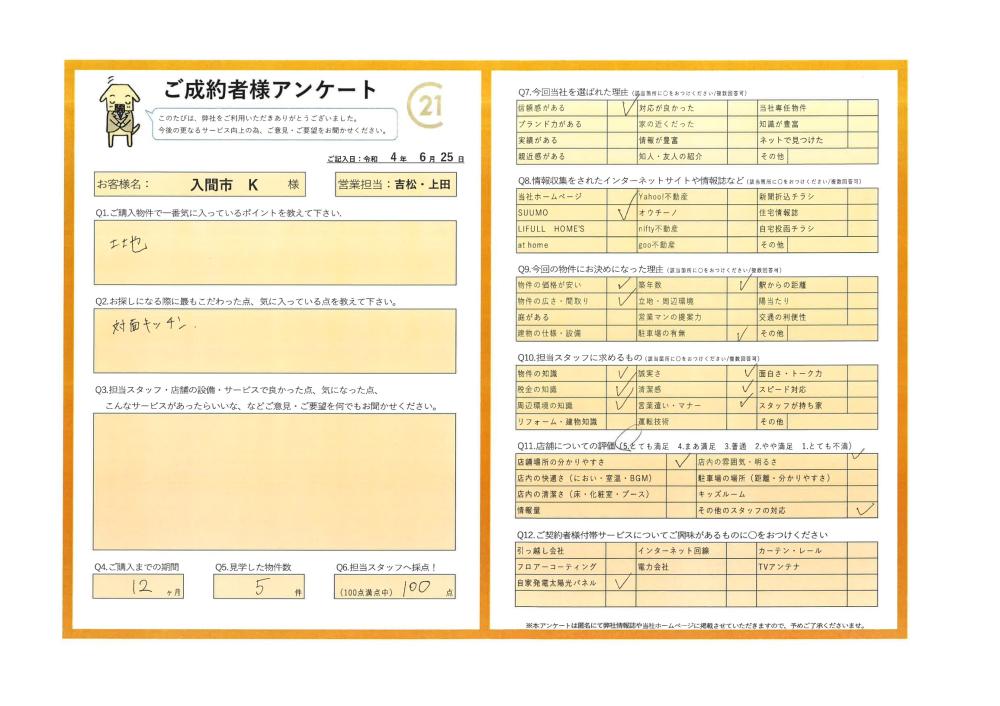 ご成約者様アンケート
21
このたびは、弊社をご利用いただきありがとうございました。
今後の更なるサービス向上の為、ご意見・ご要望をお聞かせください。
ご記入日：令和 4年 6月25日
お客様名： 入間市 K 様
営業担当：吉松・上田
Q1.ご購入物件で一番気に入っているポイントを教えて下さい.
土地
Q2.お探しになる際に最もこだわった点、気に入っている点を教えて下さい。
対面キッチン.
Q3.担当スタッフ・店舗の設備・サービスで良かった点、気になった点、
こんなサービスがあったらいいな、などご意見・ご要望を何でもお聞かせください。
Q4.ご購入までの期間
12 ヶ月
Q5.見学した物件数
5 件
Q6.担当スタッフへ採点！
(100点満点中) 100 点
Q7.今回当社を選ばれた理由 (該当箇所に〇をおつけください/複数回答可)
信頼感がある ✓ 対応が良かった 当社専任物件
ブランド力がある 家の近くだった 知識が豊富
実績がある 情報が豊富 ネットで見つけた
親近感がある 知人・友人の紹介 その他
Q8.情報収集をされたインターネットサイトや情報誌など (該当箇所に〇をおつけください/複数回答可)
当社ホームページ Yahoo!不動産 新聞折込チラシ
SUUMO ✓ オウチーノ 住宅情報誌
LIFULL HOME'S nifty不動産 自宅投函チラシ
at home goo不動産 その他
Q9.今回の物件にお決めになった理由 (該当箇所に〇をおつけください/複数回答可)
物件の価格が安い ✓ 築年数 ✓ 駅からの距離
物件の広さ・間取り ✓ 立地・周辺環境 陽当たり
庭がある 営業マンの提案力 交通の利便性
建物の仕様・設備 駐車場の有無 ✓ その他
Q10.担当スタッフに求めるもの (該当箇所に〇をおつけください/複数回答可)
物件の知識 ✓ 誠実さ ✓ 面白さ・トーク力
税金の知識 ✓ 清潔感 ✓ スピード対応
周辺環境の知識 ✓ 言葉遣い・マナー ✓ スタッフが持ち家
リフォーム・建物知識 運転技術 その他
Q11.店舗についての評価 (5.とても満足 4.まあ満足 3.普通 2.やや満足 1.とても不満)
店舗場所の分かりやすさ ✓ 店内の雰囲気・明るさ ✓
店内の快適さ（におい・室温・BGM） 駐車場の場所（距離・分かりやすさ）
店内の清潔さ（床・化粧室・ブース） キッズルーム
情報量 その他のスタッフの対応 ✓
Q12.ご契約者様付帯サービスについてご興味があるものに〇をおつけください
引っ越し会社 インターネット回線 カーテン・レール
フロアーコーティング 電力会社 TVアンテナ
自家発電太陽光パネル ✓
※本アンケートは匿名にて弊社情報誌や当社ホームページに掲載させていただきますので、予めご了承くださいませ。